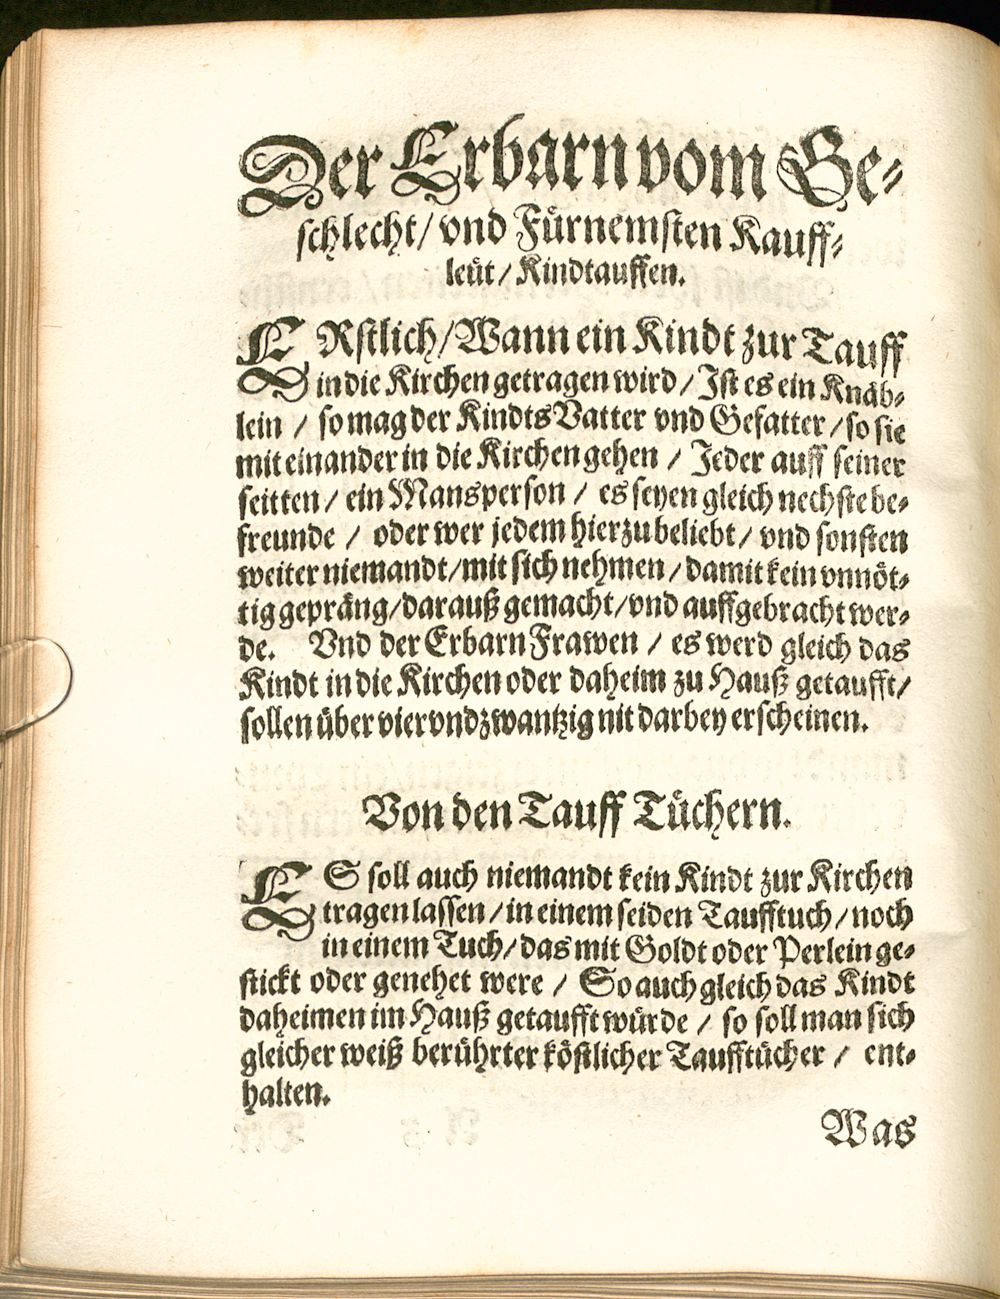 Der Erbarn vom Ge⸗
schlecht/ vnd Fürnemsten Kauff⸗
leüt/ Kindtauffen.
ERstlich/ Wann ein Kindt zur Tauff
in die Kirchen getragen wird/ Ist es ein Knäb⸗
lein / so mag der Kindts Vatter vnd Gefatter/ so sie
mit einander in die Kirchen gehen / Jeder auff seiner
seitten/ ein Mansperson / es seyen gleich nechste be⸗
freunde / oder wer jedem hierzu beliebt/ vnd sonsten
weiter niemandt/ mit sich nehmen/ damit kein vnnöt⸗
tig gepräng/ darauß gemacht/ vnd auffgebracht wer⸗
de. Vnd der Erbarn Frawen / es werd gleich das
Kindt in die Kirchen oder daheim zu Hauß getaufft/
sollen über vier vnd zwantzig nit darbey erscheinen.
Von den Tauff Tüchern.
ES soll auch niemandt kein Kindt zur Kirchen
tragen lassen/ in einem seiden Taufftuch/ noch
in einem Tuch/ das mit Goldt oder Perlein ge⸗
stickt oder genehet were / So auch gleich das Kindt
daheimen im Hauß getaufft würde / so soll man sich
gleicher weiß berührter köstlicher Taufftücher / ent⸗
halten.
Was